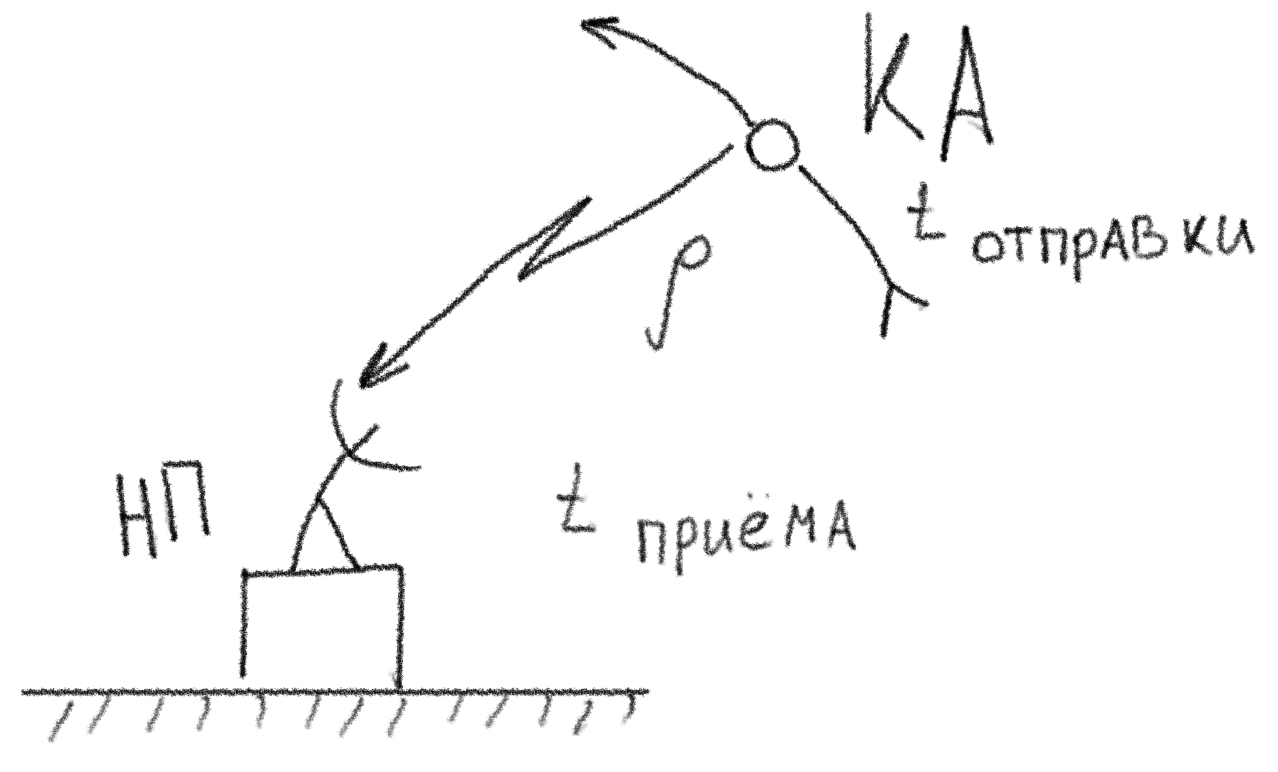 КА
t отправки
ρ
НП
t приёма